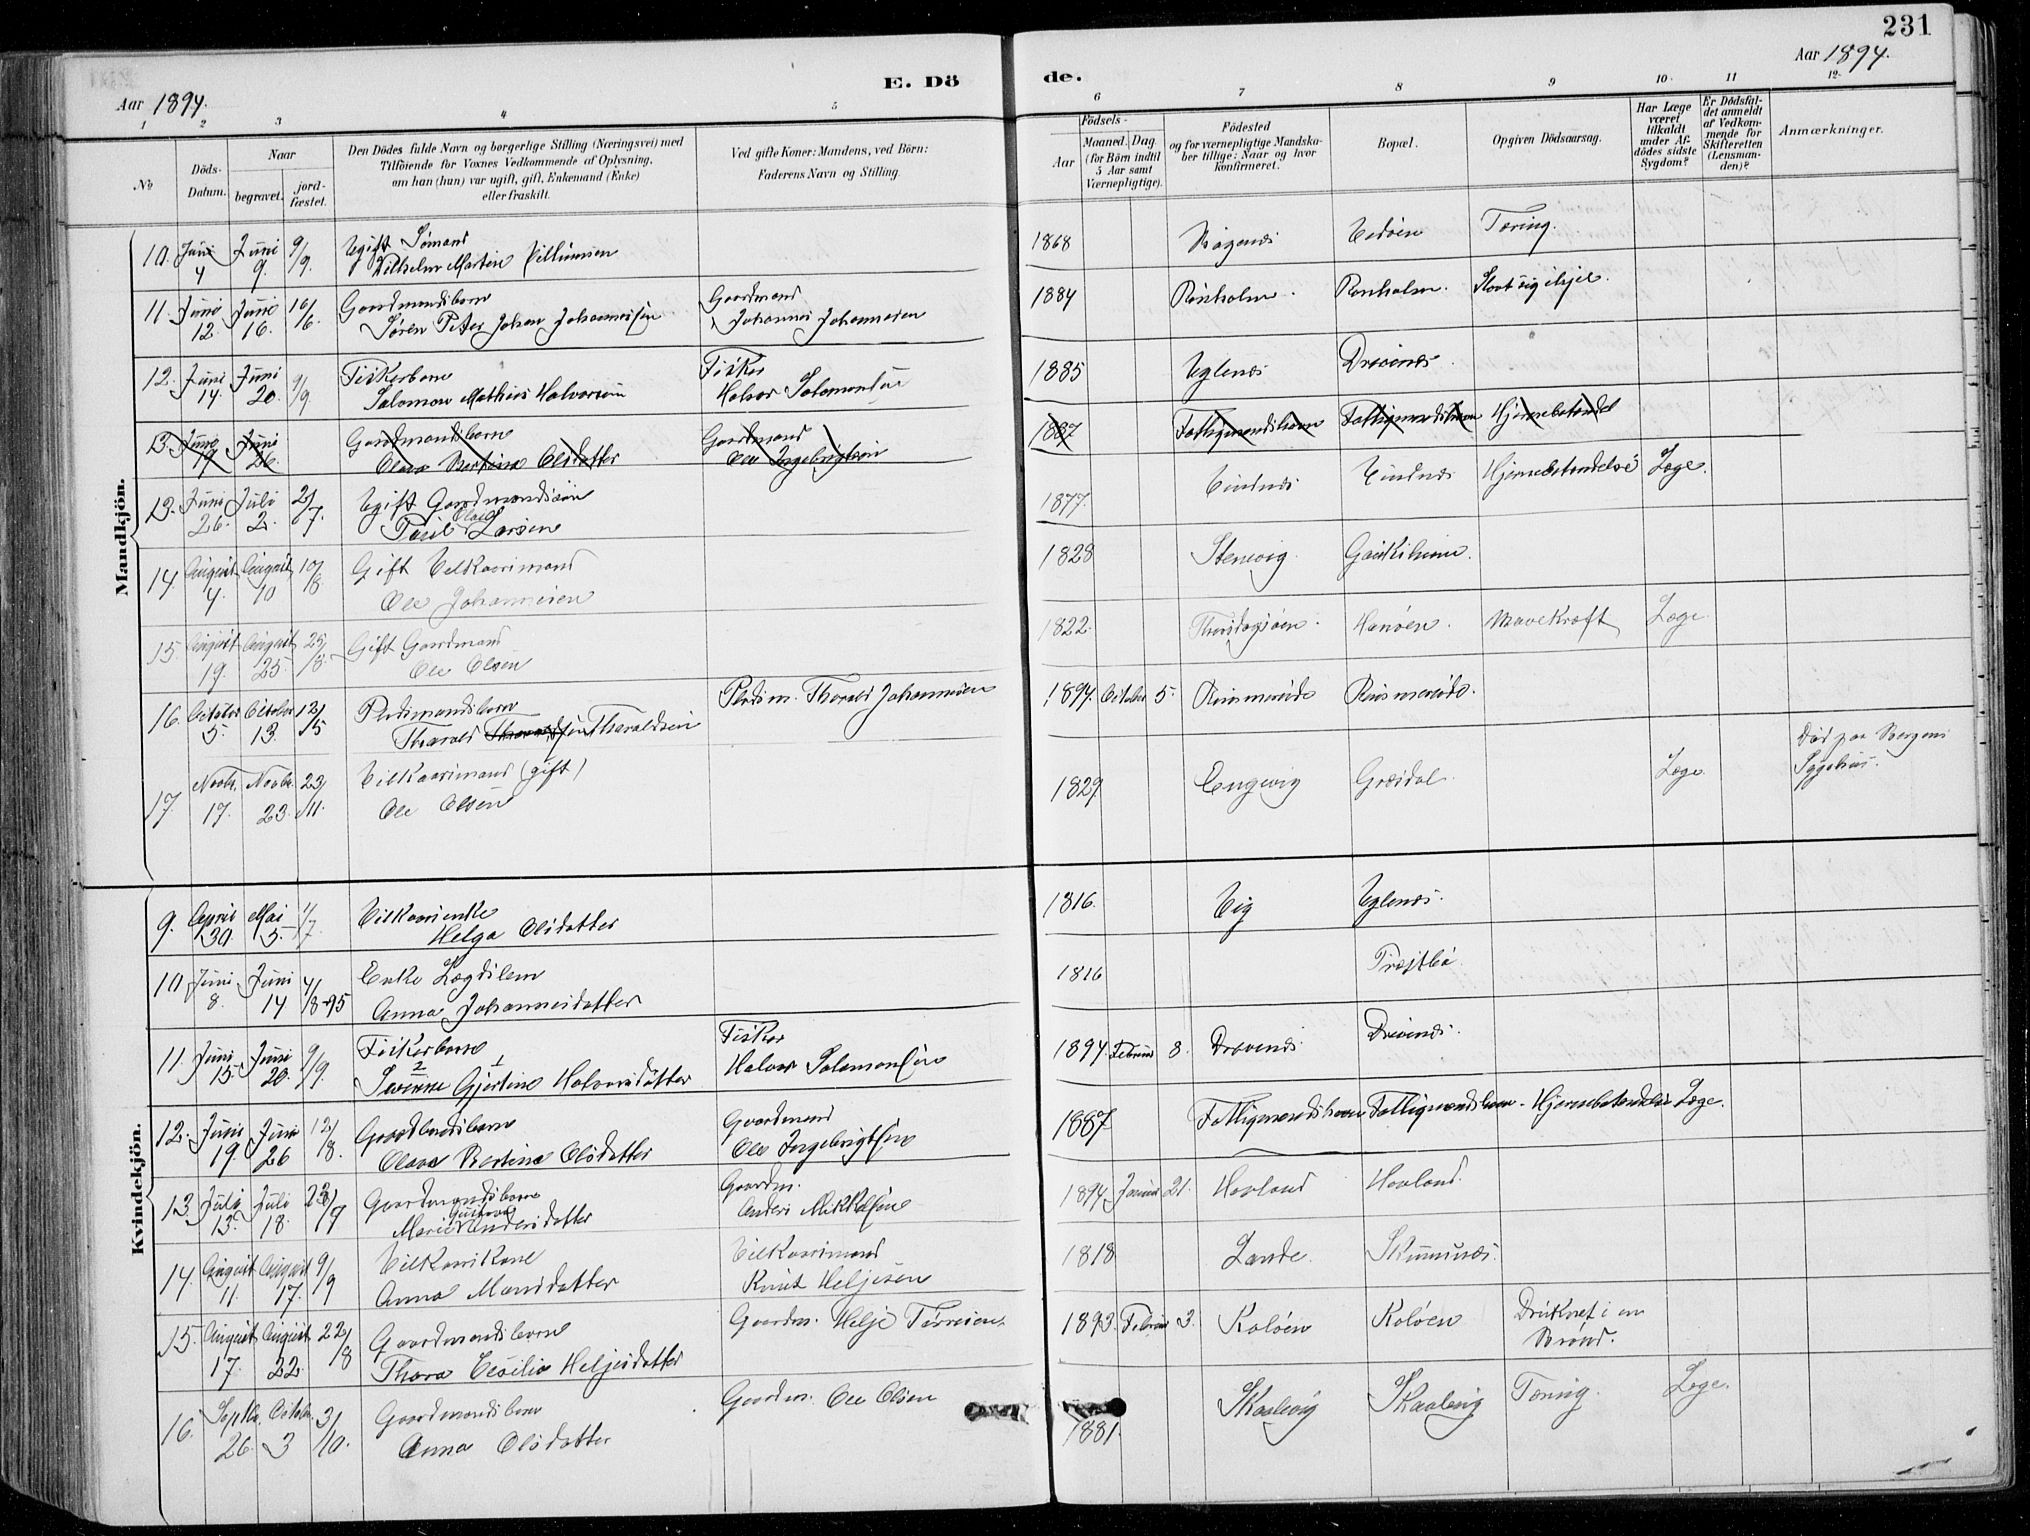 231
Aar 1894. E. Dö de. Aar 1894.
1 2 3 4 5 6 7 8 9 10. 11 12.
No
Döds-
Datum.
Naar
begravet.
jord-
fæstet.
Den Dödes fulde Navn og borgerlige Stilling (Næringsvei) med
Tilföiende for Voxnes Vedkommende af Oplysning,
om han (hun) var ugift, gift, Enkemand (Enke)
eller fraskilt.
Ved gifte Koner: Mandens, ved Börn:
Faderens Navn og Stilling.
Födsels-
Aar
Maaned. Dag.
(for Börn indtil
5 Aar samt
Værnepligtige).
Födested
og for værnepligtige Mandska-
ber tillige: Naar og hvor
konfirmeret.
Bopæl.
Opgiven Dödsaarsag.
Har Læge
været
tilkaldt
under Af-
dödes sidste
Sygdom?
Er Dödsfal-
det anmeldt
af Vedkom-
mende for
Skifteretten
(Lensman-
den)?
Anmærkninger.
Mandkjön.
10. Juni 4 Juni 9. 9/9. Ugift Sömand 1868 Tæring.
Vilhelm Martin
11. Juni 12 Juni 16. 16/6. Gaardmandsbarn Gaardmand 1884 Rönholm. Rönholm.
Sören Peter Johan Johannessen Johannes Johannesen
12. Juni 14. Juni 20. 9/9. Fiskerbarn Fisker 1885 Uglenes Drivenes.
Salomon Mathias Halvorsen Halvor Salomonsen
13. Juni 19 Juni 26. Gaardmandsbarn Gaardmand 1887 Fattigmandshavn Fattigmandshavn
Olava Bertina Olsdatter Ole Ingebrigtsen
13. Juni 26. Juli 2. 2/7. Ugift Gaardmandssön 1877. Hjernebetændelse Læge.
Paul Olai Larsen
14. August 4. August 10 10/8 Gift Velkaarsmand 1828 Stenvig.
Ole Johannesen
15. August 19. August 25. 25/8. Gift Gaardmand 1822. Mavekræft Læge
Ole Olsen
16. October 5. October 13. 12/5 Pladsmandsbarn Pladsm. Tharald Johannesen 1894. October 5.
Tharald Tharaldsen
17. Novbr. 17. Novbr. 23. 23/11. Vilkaarsmand (gift) 1829 Engevig Læge Död paa Bergens
Ole Olsen Sygehus.
Kvindekjön.
9. April 30. Mai 5. Vilkaarsenke 1816. Vig Uglenes.
Helga Olsdatter
10 Juni 8. Juni 14 4/8-95 Enke Lægdslem 1816
Anna Johannesdatter
11. Juni 15. Juni 20. 9/9. Fiskerbarn Fisker 1894. Februar 8. Drivenes.
2 1
Gjertine Halvorsdatter Halvor Salomonsen
12. Juni 19. Juni 26 12/8. Gaardmandsbarn Gaardmand 1887 Fattigmandshavn Fattigmandshavn. Hjernebetændelse Læge.
Olava Bertina Olsdatter Ole Ingebrigtsen
13. Juli 13. Juli 18. Gaardmandsbarn Gaardm. 1894. Januar 21. Hovland Hovland.
Marie Gustava Andersdatter Anders Mikkelsen
14. August 11. August 17. 9/9 Vilkaarskone Vilkaarsmand 1818 Lande.
Anna Monsdatter Knut Heljesen
15. August 17. August 22. 22/8 Gaardmandsbarn Gaardm. Helje 1893. Februar 3. Kolöen Kolöen Druknet i en
Thora Cecilia Heljesdatter Brönd.
16. Septbr. 26. Octobr. 3 3/10. Gaardmandsbarn Gaardm. Ole Olsen 1881. Skaalevig Skaalevig Tæring. Læge.
Anna Olsdatter